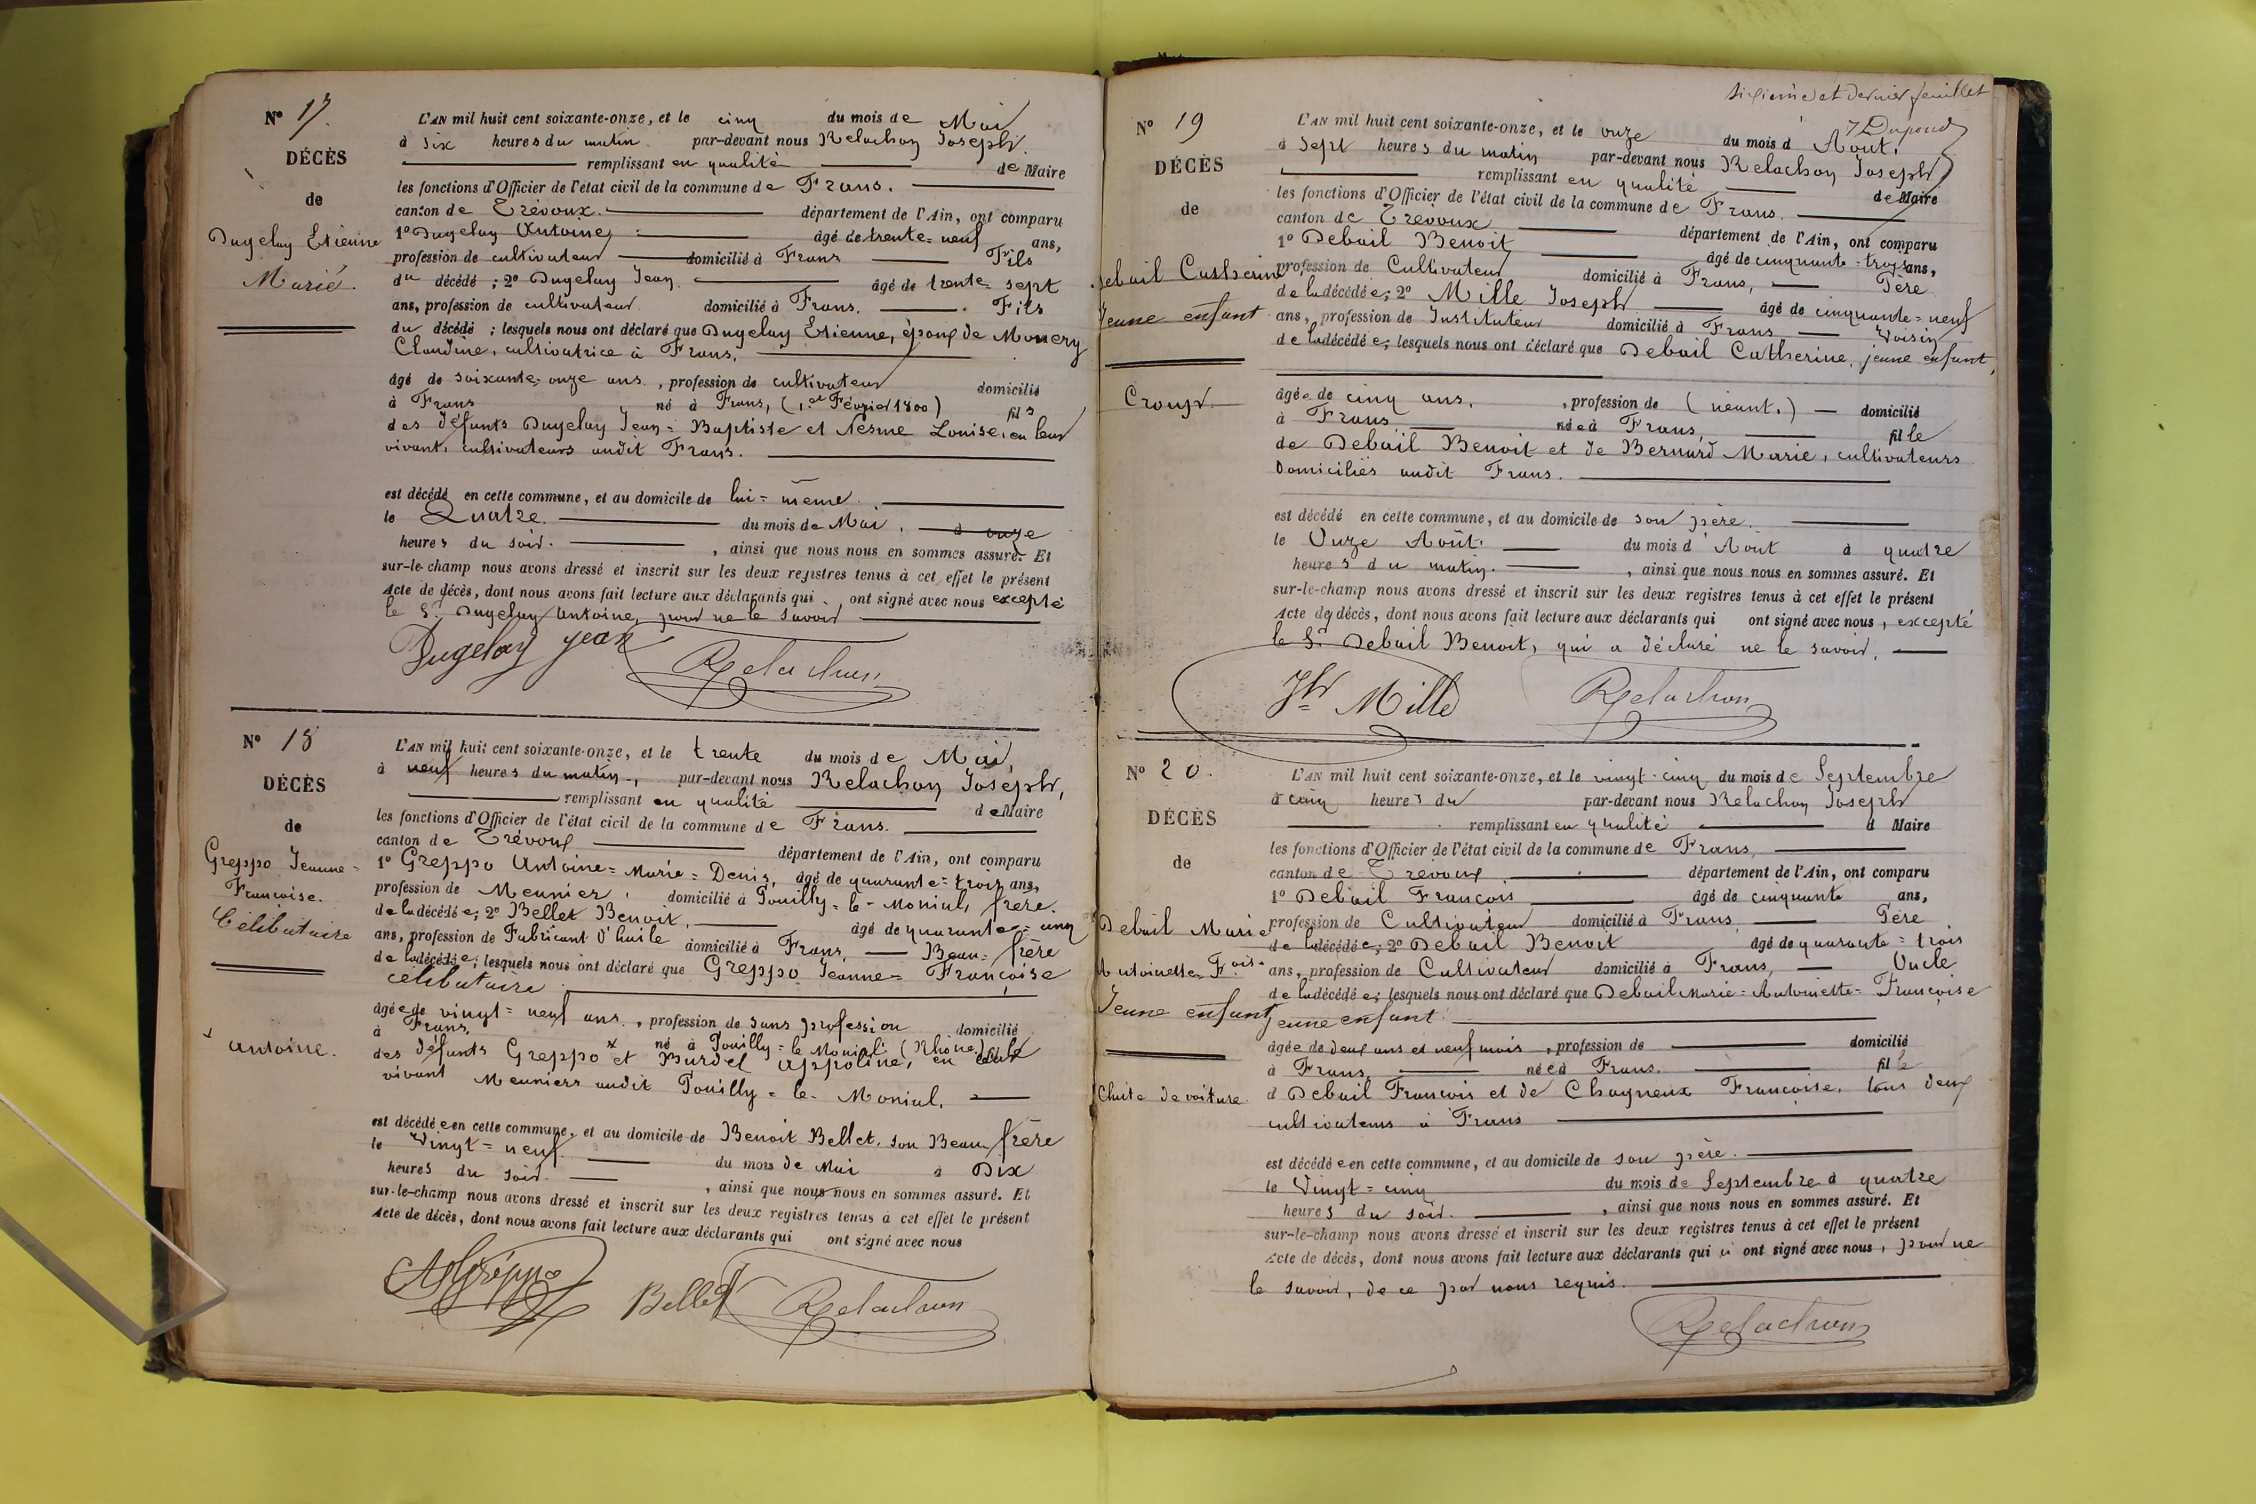 N° 17.
DÉCÈS
de
Dugelay Etienne
Marié.
L'AN mil huit cent soixante-onze, et le cinq du mois de Mai
à six heures du matin par-devant nous Relachon Joseph.
remplissant en qualité de Maire
les fonctions d'Officier de l'état civil de la commune de Frans.
canton de Trévoux. département de l'Ain, ont comparu
1° Dugelay Antoine, âgé de trente=neuf ans,
profession de cultivateur domicilié à Frans Fils
du décédé ; 2° Dugelay Jean. âgé de trente=sept
ans, profession de cultivateur domicilié à Frans. Fils
du décédé ; lesquels nous ont déclaré que Dugelay Etienne, époux de Monery
Claudine, cultivatrice à Frans,
âgé de soixante=onze ans, profession de cultivateur domicilié
à Frans né à Frans, (1er Février 1800) fils
des défunts Dugelay Jean=Baptiste et Nesme Louise, en leur
vivant, cultivateurs audit Frans.
est décédé en cette commune, et au domicile de lui=même.
le Quatre. du mois de Mai, à onze
heures du soir. , ainsi que nous nous en sommes assuré. Et
sur-le-champ nous avons dressé et inscrit sur les deux registres tenus à cet effet le présent
Acte de décès, dont nous avons fait lecture aux déclarants qui ont signé avec nous excepté
le Sr Dugelay Antoine, pour ne le savoir
Dugelay jean Relachon
N° 18
DÉCÈS
de
Greppo Jeanne=
Françoise.
Célibataire
x antoine.
L'AN mil huit cent soixante-onze, et le trente du mois de Mai,
à neuf heures du matin, par-devant nous Relachon Joseph,
remplissant en qualité de Maire
les fonctions d'Officier de l'état civil de la commune de Frans.
canton de Trévoux département de l'Ain, ont comparu
1° Greppo Antoine=Marie=Denis, âgé de quarante=trois ans,
profession de Meunier, domicilié à Pouilly=le=Monial, frère.
de la décédée; 2° Bellet Benoit, âgé de quarante=cinq
ans, profession de Fabricant d'huile domicilié à Frans, Beau=frère
de la décédée; lesquels nous ont déclaré que Greppo Jeanne=Françoise
célibataire
âgée de vingt=neuf ans, profession de sans profession domicilié
à Frans, né à Pouilly=le Monial (Rhône) fille
des défunts Greppo x et Burdel Appoline, en leur
vivant Meuniers audit Pouilly=le=Monial.
est décédée en cette commune, et au domicile de Benoit Bellet, son Beau-frère
le Vingt=neuf. du mois de Mai à Dix
heures du soir. , ainsi que nous nous en sommes assuré. Et
sur-le-champ nous avons dressé et inscrit sur les deux registres tenus à cet effet le présent
Acte de décès, dont nous avons fait lecture aux déclarants qui ont signé avec nous
Bellet Relachon
Sixième et dernier feuillet
N° 19
DÉCÈS
de
Debail Catherine
Jeune enfant
Croup.
L'AN mil huit cent soixante-onze, et le onze du mois d'Aout,
à sept heures du matin par-devant nous Relachon Joseph
remplissant en qualité de Maire
les fonctions d'Officier de l'état civil de la commune de Frans.
canton de Trévoux département de l'Ain, ont comparu
1° Debail Benoit âgé de cinquante=trois ans,
profession de Cultivateur domicilié à Frans, Père
de la décédée; 2° Mille Joseph âgé de cinquante=neuf
ans, profession de Instituteur domicilié à Frans Voisin
de la décédée; lesquels nous ont déclaré que Debail Catherine, jeune enfant,
âgée de cinq ans, , profession de (néant.) domicilié
à Frans née à Frans, fille
de Debail Benoit et de Bernard Marie, cultivateurs
domiciliés audit Frans.
est décédé en cette commune, et au domicile de son père.
le Onze Août. du mois d'Août à quatre
heures du matin. , ainsi que nous nous en sommes assuré. Et
sur-le-champ nous avons dressé et inscrit sur les deux registres tenus à cet effet le présent
Acte de décès, dont nous avons fait lecture aux déclarants qui ont signé avec nous, excepté
le Sr Debail Benoit, qui a déclaré ne le savoir.
Jh Mille Relachon
N° 20.
DÉCÈS
de
Debail Marie
Antoinette Foise
Jeune enfant
Chute de voiture.
L'AN mil huit cent soixante-onze, et le vingt-cinq du mois de Septembre
à cinq heures du par-devant nous Relachon Joseph
remplissant en qualité d Maire
les fonctions d'Officier de l'état civil de la commune de Frans,
canton de Trévoux département de l'Ain, ont comparu
1° Debail François âgé de cinquante ans,
profession de Cultivateur domicilié à Frans, Père
de la décédée; 2° Debail Benoit âgé de quarante=trois
ans, profession de Cultivateur domicilié à Frans, Oncle
de la décédée; lesquels nous ont déclaré que Debail Marie=Antoinette=Françoise
jeune enfant.
âgée de deux ans et neuf mois, profession de domicilié
à Frans, née à Frans. fille
d Debail François et de Chagneux Françoise, tous deux
cultivateurs à Frans
est décédée en cette commune, et au domicile de son père.
le Vingt=cinq du mois de Septembre à quatre
heures du soir. , ainsi que nous nous en sommes assuré. Et
sur-le-champ nous avons dressé et inscrit sur les deux registres tenus à cet effet le présent
Acte de décès, dont nous avons fait lecture aux déclarants qui ont signé avec nous, pour ne
le savoir, de ce par nous requis.
Relachon